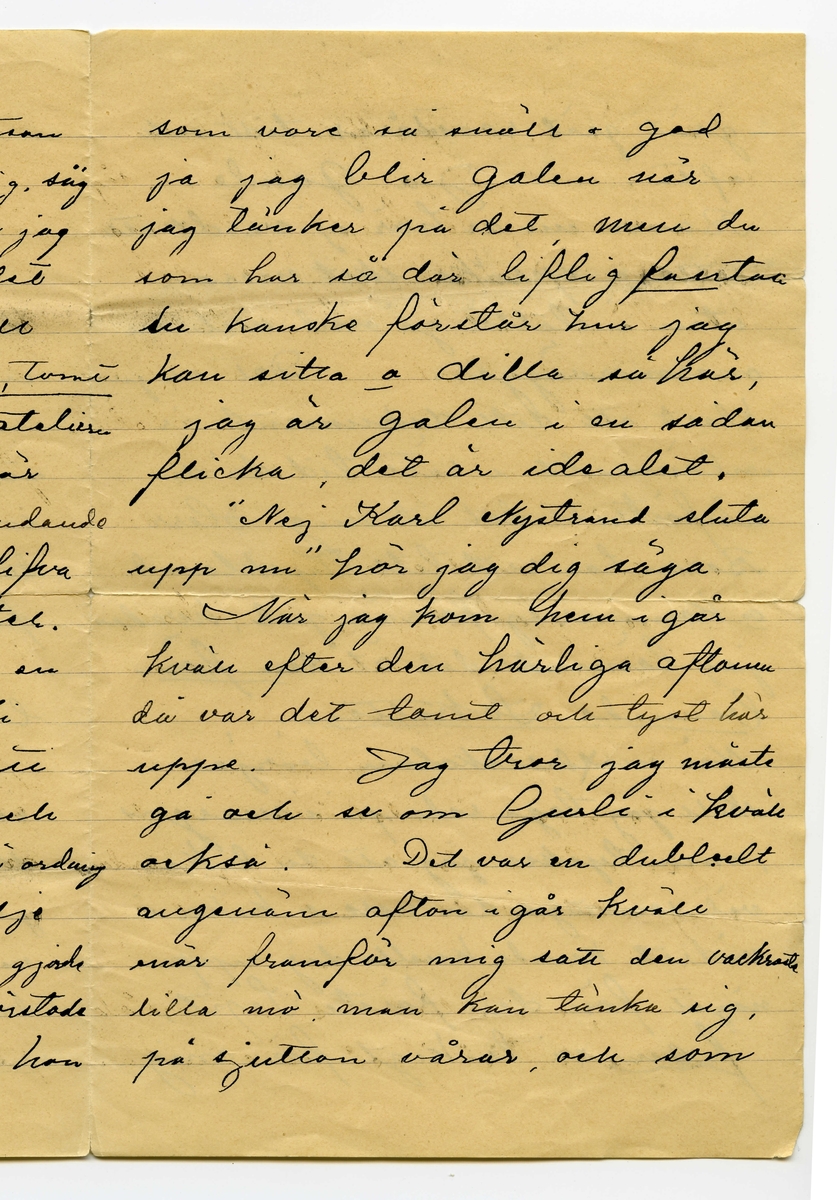 son
g. säg
jag
, tomt
atelieren
är
ndande
lifva
en
ch
ordning
gjorde
rstode
han
som vore så snäll & god
ja jag blir galen när
jag tänker på det, men du
som har så där liflig fantasi
du kanske förstår hur jag
kan sitta o dilla så här,
jag är galen i en sådan
flicka, det är idealet.
"Nej Karl Nystrand sluta
upp nu" hör jag dig säga
När jag kom hem i går
kväll efter den härliga aftonen
då var det tomt och tyst här
uppe. Jag tror jag måste
gå och se om Gurli i kväll
också. Det var en dubbelt
angenäm afton i går kväll
enär framför mig satt den vackraste
lilla mö, man kan tänka sig,
på sjutton vårar, och som